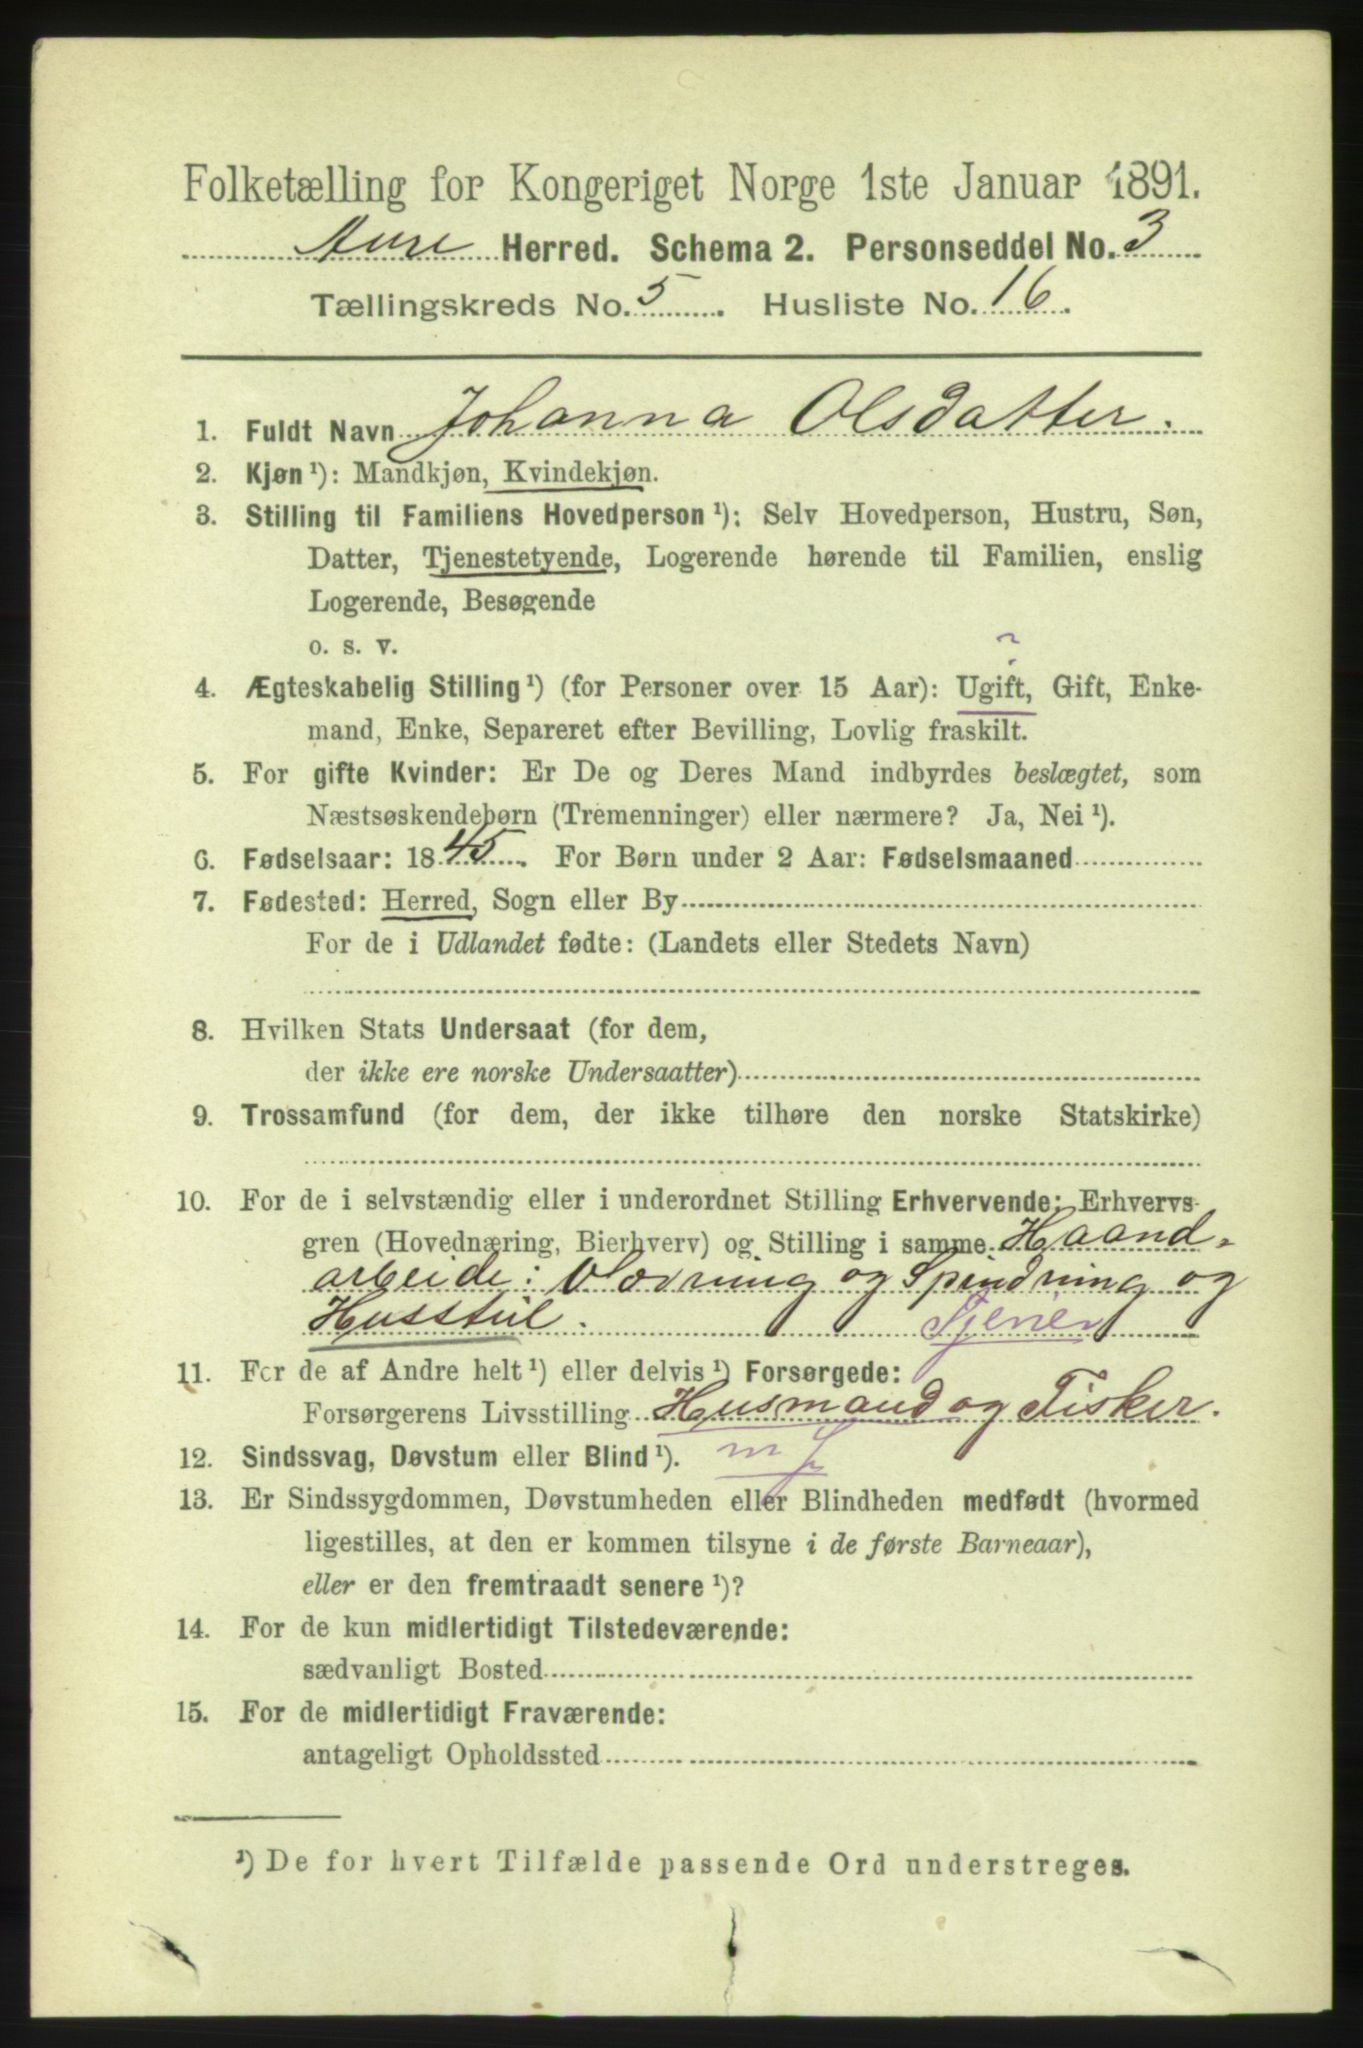 Folketælling for Kongeriget Norge 1ste Januar 1891.
Aure Herred. Schema 2. Personseddel No. 3
Tællingskreds No. 5. Husliste No. 16.
1. Fuldt Navn Johanna Olsdatter.
2. Kjøn ¹): Mandkjøn, Kvindekjøn.
3. Stilling til Familiens Hovedperson ¹): Selv Hovedperson, Hustru, Søn,
Datter, Tjenestetyende, Logerende hørende til Familien, enslig
Logerende, Besøgende
o. s. v.
?
4. Ægteskabelig Stilling ¹) (for Personer over 15 Aar): Ugift, Gift, Enke-
mand, Enke, Separeret efter Bevilling, Lovlig fraskilt.
5. For gifte Kvinder: Er De og Deres Mand indbyrdes beslægtet, som
Næstsøskendebørn (Tremenninger) eller nærmere? Ja, Nei ¹).
6. Fødselsaar: 1845. For Børn under 2 Aar: Fødselsmaaned
7. Fødested: Herred, Sogn eller By
For de i Udlandet fødte: (Landets eller Stedets Navn)
8. Hvilken Stats Undersaat (for dem,
der ikke ere norske Undersaatter)
9. Trossamfund (for dem, der ikke tilhøre den norske Statskirke)
10. For de i selvstændig eller i underordnet Stilling Erhvervende: Erhvervs-
gren (Hovednæring, Bierhverv) og Stilling i samme. Haand-
arbeide: Vævning og Spindning og
Husstel. Tjener
11. For de af Andre helt ¹) eller delvis ¹) Forsørgede:
Forsørgerens Livsstilling Husmand og Fisker.
12. Sindssvag, Døvstum eller Blind ¹). m J
13. Er Sindssygdommen, Døvstumheden eller Blindheden medfødt (hvormed
ligestilles, at den er kommen tilsyne i de første Barneaar),
eller er den fremtraadt senere ¹)?
14. For de kun midlertidigt Tilstedeværende:
sædvanligt Bosted
15. For de midlertidigt Fraværende:
antageligt Opholdssted
¹) De for hvert Tilfælde passende Ord understreges.